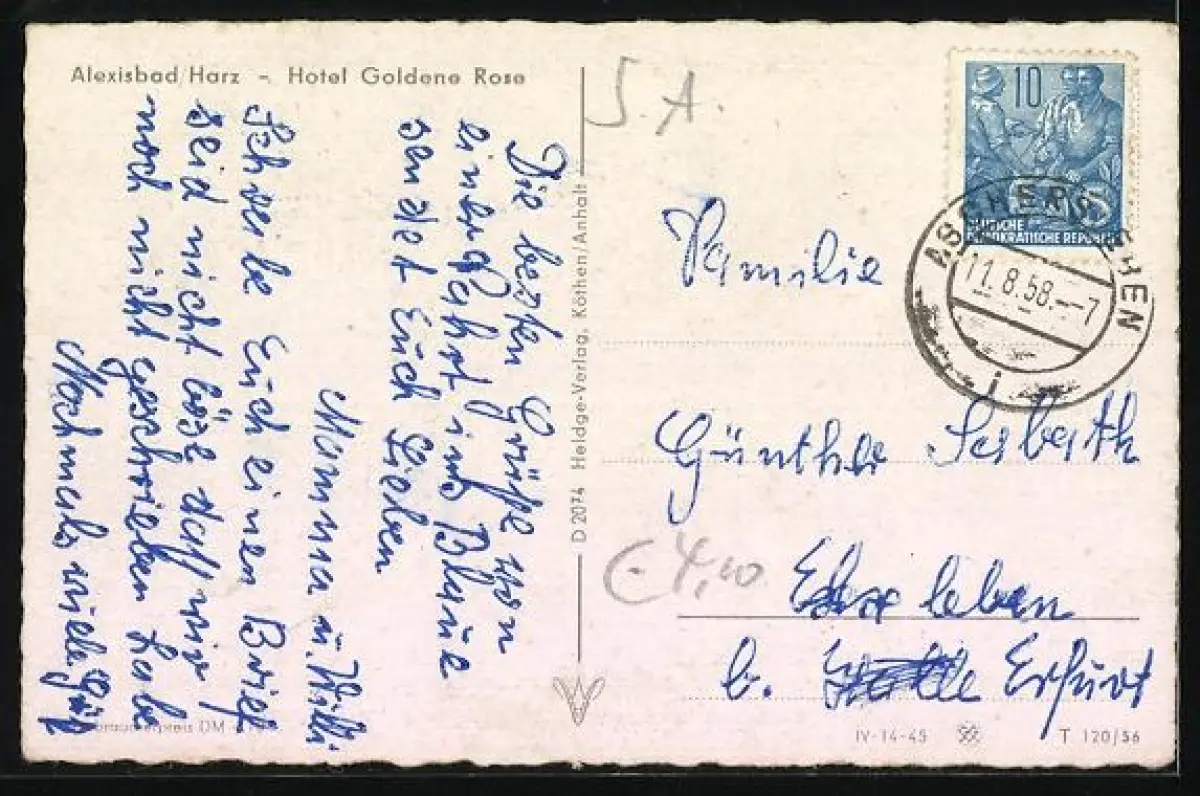 Alexisbad/Harz - Hotel Goldene Rose
Die besten Grüße von
einer Fahrt ins Blaue
sendet Euch Lieben
Mamma u. Willi
Schreibe Euch einen Brief
seid nicht böse daß wir
noch nicht geschrieben habe
Nochmals viele Grüß
D 2074 Heldge-Verlag, Köthen/Anhalt
S.A.
10
DEUTSCHE
DEMOKRATISCHE REPUBLIK
ASCHERSLEBEN
11.8.58.-7
i
Familie
Günther Sabath
€ 4,00
leben
b. Erfurt
IV-14-45
T 120/56